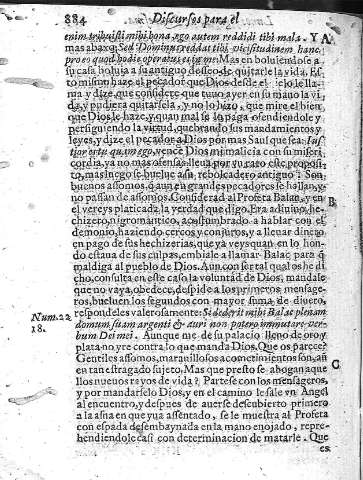 884 Discursos para el
enim tribuisti mihi bona, ego autem reddidi tibi mala. Y A
mas abaxo; Sed Dominus reddat tibi vicissitudinem hanc,
pro eo quod hodie operatus es in me. Mas en boluiendose a
su casa boluia a su antiguo desseo de quitarle la vida. Es
to mismo haze el pecador que Dios desde el cielo le lla-
ma y dize, que considere que tuuo ayer en su mano la vi
da, y pudiera quitarsela, y no lo hizo, que mire el bien
que Dios le haze, y quan mal se lo paga ofendiendole y
persiguiendo la virtud, quebrando sus mandamientos y
leyes, y dize el pecador a Dios por mas Saul que sea: Ius
tior es tu quam ego, vence Dios mi malicia con su miseri
cordia, ya no mas ofensas, lleua por vn rato este proposi
to, mas luego se buelue a su reboleadero antiguo: Son
buenos assomos, q̃ aun en grandes pecadores se hallan, y
no passan de assomos. Considerad al Profeta Balac, y en B
el vereys platicada la verdad que digo. Era adiuino, he-
chizero, nigromantico, acostumbrado a hablar con el
demonio, haziendo cercos y conjuros, y a lleuar dinero
en pago de sus hechizerias, que ya veys quan en lo hon-
do estaua de sus culpas, embiale a llamar Balac para q̃
maldiga al pueblo de Dios. Aun con ser tal qual os he di
cho, consulta en este caso la voluntad de Dios, mandale
que no vaya, obedece, despide a los primeros mensage-
ros, bueluen los segundos con mayor suma de dinero,
Num. 22 respondeles valerosamente: Si dederit mihi Balac plenam
18. domum suam argenti & auri non potero immutare ver-
bum Dei mei. Aunque me de su palacio lleno de oro y
plata no yre contra lo que manda Dios. Que os parece?
Gentiles assomos, marauillosos acometimientos son, aũ C
en tan estragado sujeto, Mas que presto se ahogan aque
llos nueuos rayos de vida? Partese con los mensageros,
y por mandarselo Dios, y en el camino le sale vn Angel
al encuentro, y despues de auerse descubierto primero
a la asna en que yua assentado, se le muestra al Profeta
con espada desembaynada en la mano enojado, repre-
hendiendole casi con determinacion de matarle. Que
es.